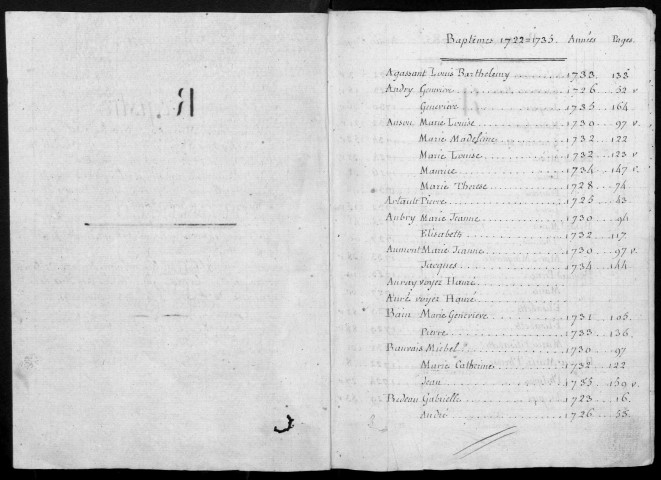 Baptêmes 1722=1735. Années Pages.
Agassant Louis Barthelemy 1733. 133
Andry Germain 1726. 52 v
Genevieve 1735. 164
Ansou Marie Louise 1730. 97 v
Marie Madeleine 1732. 122
Marie Louise 1732. 123 v
Maurice 1734. 147 v.
Marie Therese 1728. 74
Artault Pierre 1725. 43
Aubry Marie Jeanne 1730. 94
Elisabeth 1732. 117
Aumont Marie Jeanne 1730. 97 v.
Jacques 1734. 144
Auray voyez Hauré
Auré voyez Hauré
Bain Marie Genevieve 1731. 105
Pierre 1733. 136
Beauvais Michel 1730. 97
Marie Catherine 1732. 122
Jean 1735. 159 v.
Bedeau Gabrielle 1723. 16
André 1726. 55